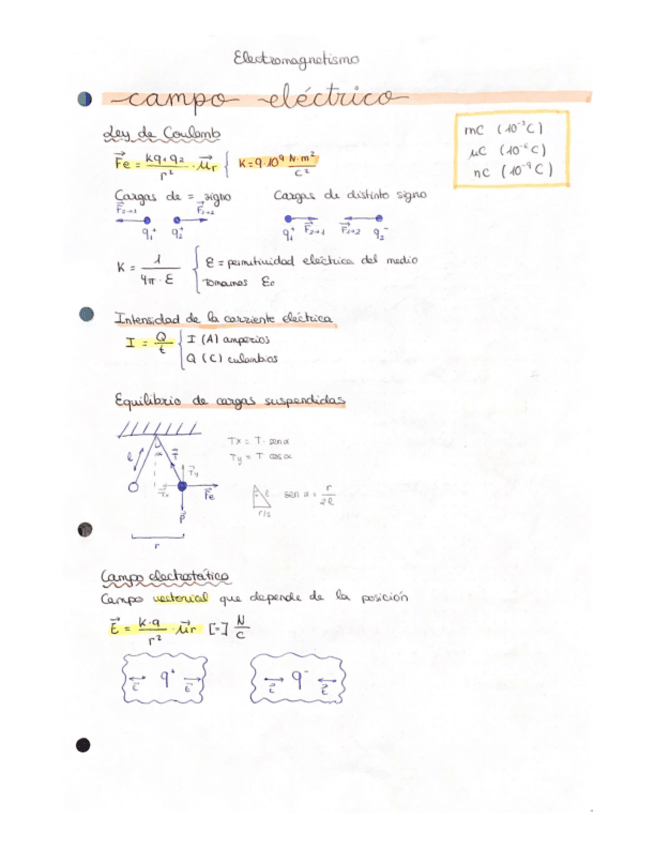 Electromagnetismo
campo eléctrico
mC (10⁻³C)
μC (10⁻⁶C)
nC (10⁻⁹C)
Ley de Coulomb
F⃗e = kq₁q₂/r² · μ⃗r { K=9·10⁹ N·m²/C²
Cargas de = signo
F⃗₂→₁ F⃗₁→₂
q₁⁺ q₂⁺
Cargas de distinto signo
q₁⁺ F⃗₂→₁ F⃗₁→₂ q₂⁻
K = 1/4π·ε { ε = permitividad eléctrica del medio
Tomamos ε₀
Intensidad de la corriente eléctrica
I = Q/t { I (A) amperios
Q (C) culombios
Equilibrio de cargas suspendidas
Tx = T · sen α
Ty = T cos α
ℓ α T⃗ T⃗y
T⃗x F⃗e
P⃗
r
ℓ r/2 sen α = r/2ℓ
Campo electrostático
Campo vectorial que depende de la posición
E⃗ = K·q/r² · μ⃗r [=] N/C
E⃗ q⁺ E⃗
E⃗ q⁻ E⃗